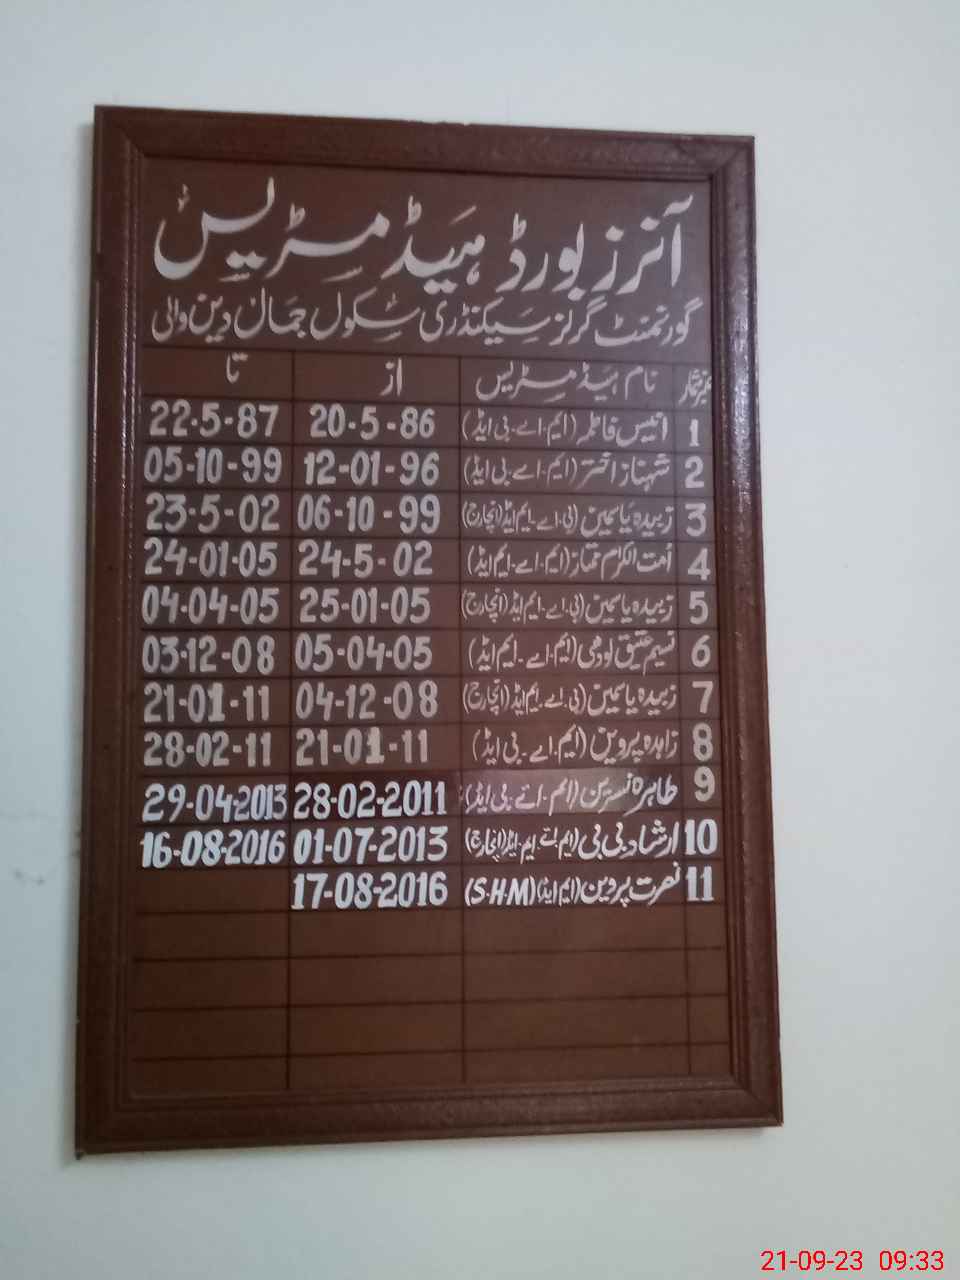 آنرز بورڈ ہیڈ مسٹریس
گورنمنٹ گرلز سیکنڈری سکول جمال دین والی
نمبر شمار نام ہیڈ مسٹریس از تا
1 انیس فاطمہ (ایم.اے.بی ایڈ) 20-5-86 22-5-87
2 شہناز اختر (ایم.اے.بی ایڈ) 12-01-96 05-10-99
3 زبیدہ یاسمین (بی.اے.ایم ایڈ) (انچارج) 06-10-99 23-5-02
4 اُمت الکرم ممتاز (ایم.اے.ایم ایڈ) 24-5-02 24-01-05
5 زبیدہ یاسمین (بی.اے.ایم ایڈ) (انچارج) 25-01-05 04-04-05
6 نسیم عتیق لودھی (ایم.اے.ایم ایڈ) 05-04-05 03-12-08
7 زبیدہ یاسمین (بی.اے.ایم ایڈ) (انچارج) 04-12-08 21-01-11
8 زاہدہ پروین (ایم.اے.بی ایڈ) 21-01-11 28-02-11
9 طاہرہ نسرین (ایم.اے.بی ایڈ) 28-02-2011 29-04-2013
10 ارشاد بی بی (ایم.اے.ایم.ایڈ) (انچارج) 01-07-2013 16-08-2016
11 نصرت پروین (ایم ایڈ) (S.H.M) 17-08-2016
21-09-23 09:33